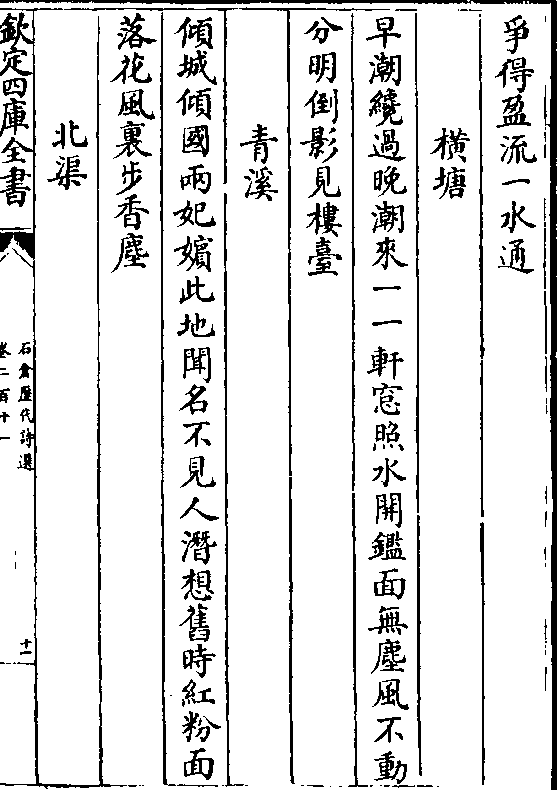 爭得盈流一水通
橫塘
早潮纔過晚潮來一一軒窓照水開鑑面無塵風不動
分明倒影見樓臺
青溪
傾城傾國兩妃嬪此地聞名不見人潛想舊時紅粉面
落花風裏步香塵
北渠
欽定四庫全書
石倉歷代詩選
卷二百十一
十一